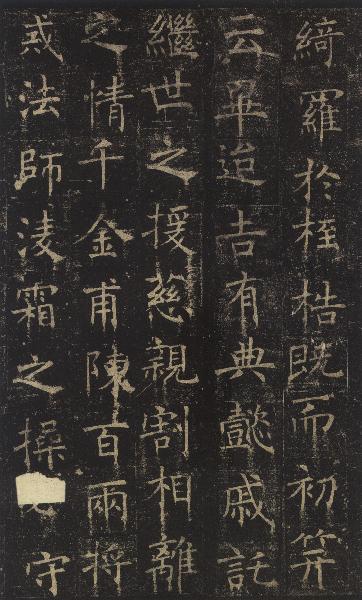 綺羅於桎梏既而初笄
云畢迨吉有典懿戚託
繼世之援慈親割相離
之情千金甫陳百兩將
戒法師淩霜之操守